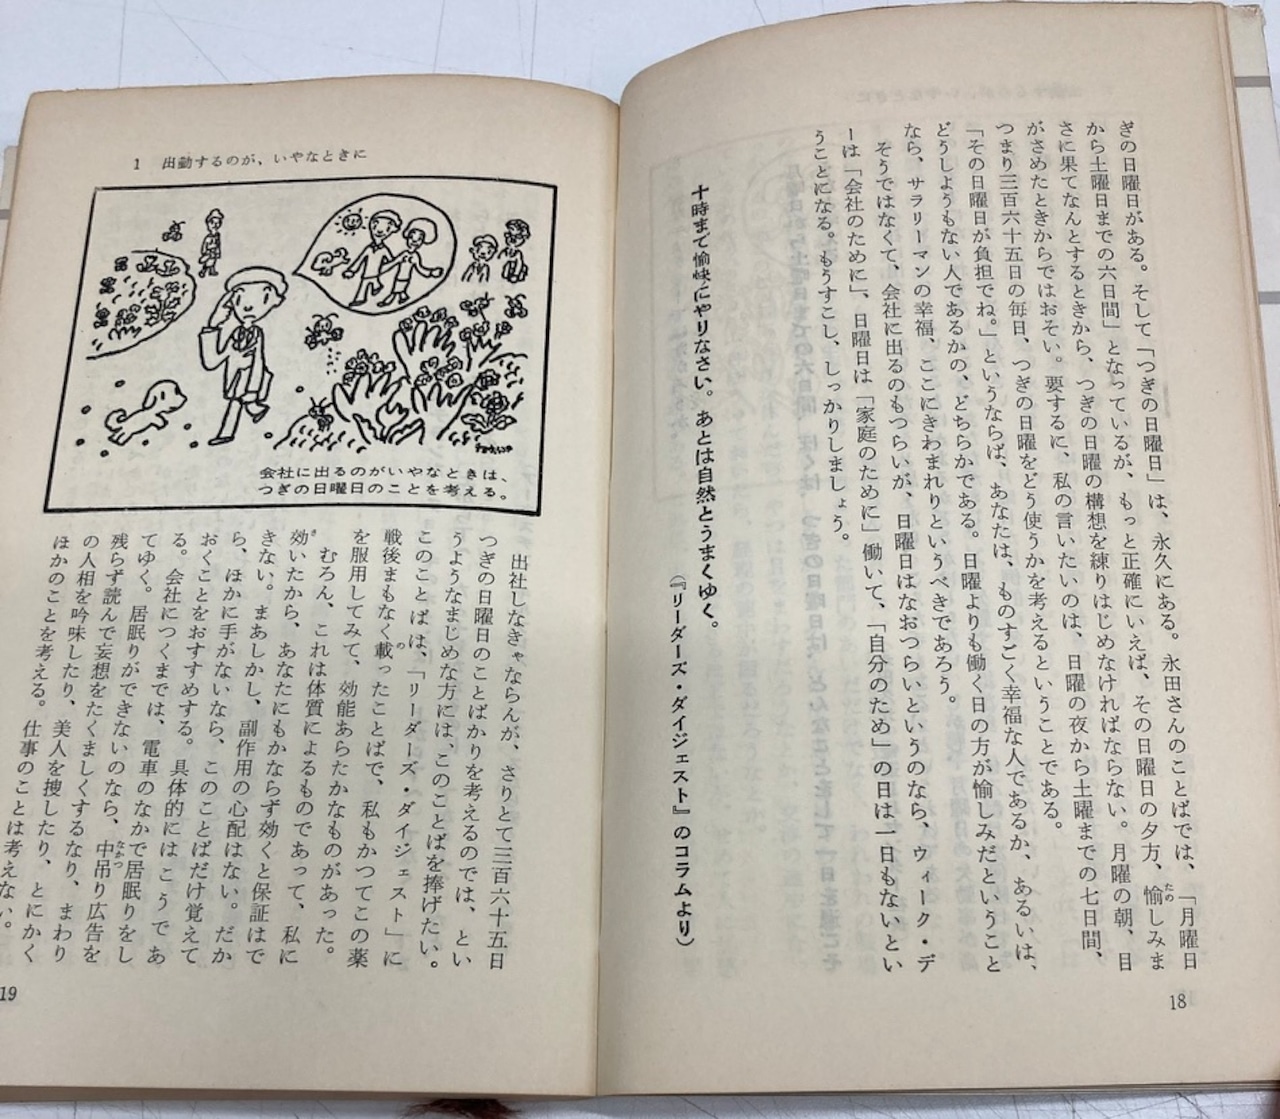 ぎの日曜日がある。そして「つぎの日曜日」は、永久にある。永田さんのことばでは、「月曜日
から土曜日までの六日間」となっているが、もっと正確にいえば、その日曜日の夕方、愉しみま
さに果てなんとするときから、つぎの日曜の構想を練りはじめなければならない。月曜の朝、目
がさめたときからではおそい。要するに、私の言いたいのは、日曜の夜から土曜までの七日間、
つまり三百六十五日の毎日、つぎの日曜をどう使うかを考えるということである。
「その日曜日が負担でね。」というならば、あなたは、ものすごく幸福な人であるか、あるいは、
どうしようもない人であるかの、どちらかである。日曜よりも働く日の方が愉しみだということ
なら、サラリーマンの幸福、ここにきわまれりというべきであろう。
そうではなくて、会社に出るのもつらいが、日曜日はなおつらいというのなら、ウィーク・デ
ーは「会社のために」、日曜日は「家庭のために」働いて、「自分のため」の日は一日もないとい
うことになる。もうすこし、しっかりしましょう。
十時まで愉快にやりなさい。あとは自然とうまくゆく。
（『リーダーズ・ダイジェスト』のコラムより）
18
1 出勤するのが、いやなときに
会社に出るのがいやなときは、
つぎの日曜日のことを考える。
出社しなきゃならんが、さりとて三百六十五日
つぎの日曜日のことばかりを考えるのでは、とい
うようなまじめな方には、このことばを捧げたい。
このことばは、「リーダーズ・ダイジェスト」に
戦後まもなく載ったことばで、私もかつてこの薬
を服用してみて、効能あらたかなものがあった。
むろん、これは体質によるものであって、私に
効いたから、あなたにもかならず効くと保証はで
きない。まあしかし、副作用の心配はない。だか
ら、ほかに手がないなら、このことばだけ覚えて
おくことをおすすめする。具体的にはこうであ
る。会社につくまでは、電車のなかで居眠りをし
てゆく。居眠りができないのなら、中吊り広告を
残らず読んで妄想をたくましくするなり、まわり
の人相を吟味したり、美人を捜したり、とにかく
ほかのことを考える。仕事のことは考えない。
19